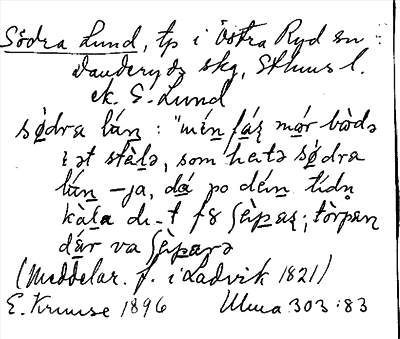 Södra Lund, tp i Östra Ryd sn
Danderyds skg, Sthms l.
ek. E. Lund
sǿdra lún̲ : "mín fáʂ mor bòdə
i ət stàl̲ə, som hetə sǿdra
lún̲ – ja, dá po dén̲ tídn̥
kàl̲a di_t fø ʃèp̲aʂ; tòrpən
dár va ʃèp̲arə
(Meddelar. f. i Ladvik 1821)
E. Kruuse 1896 Ulma 303:83